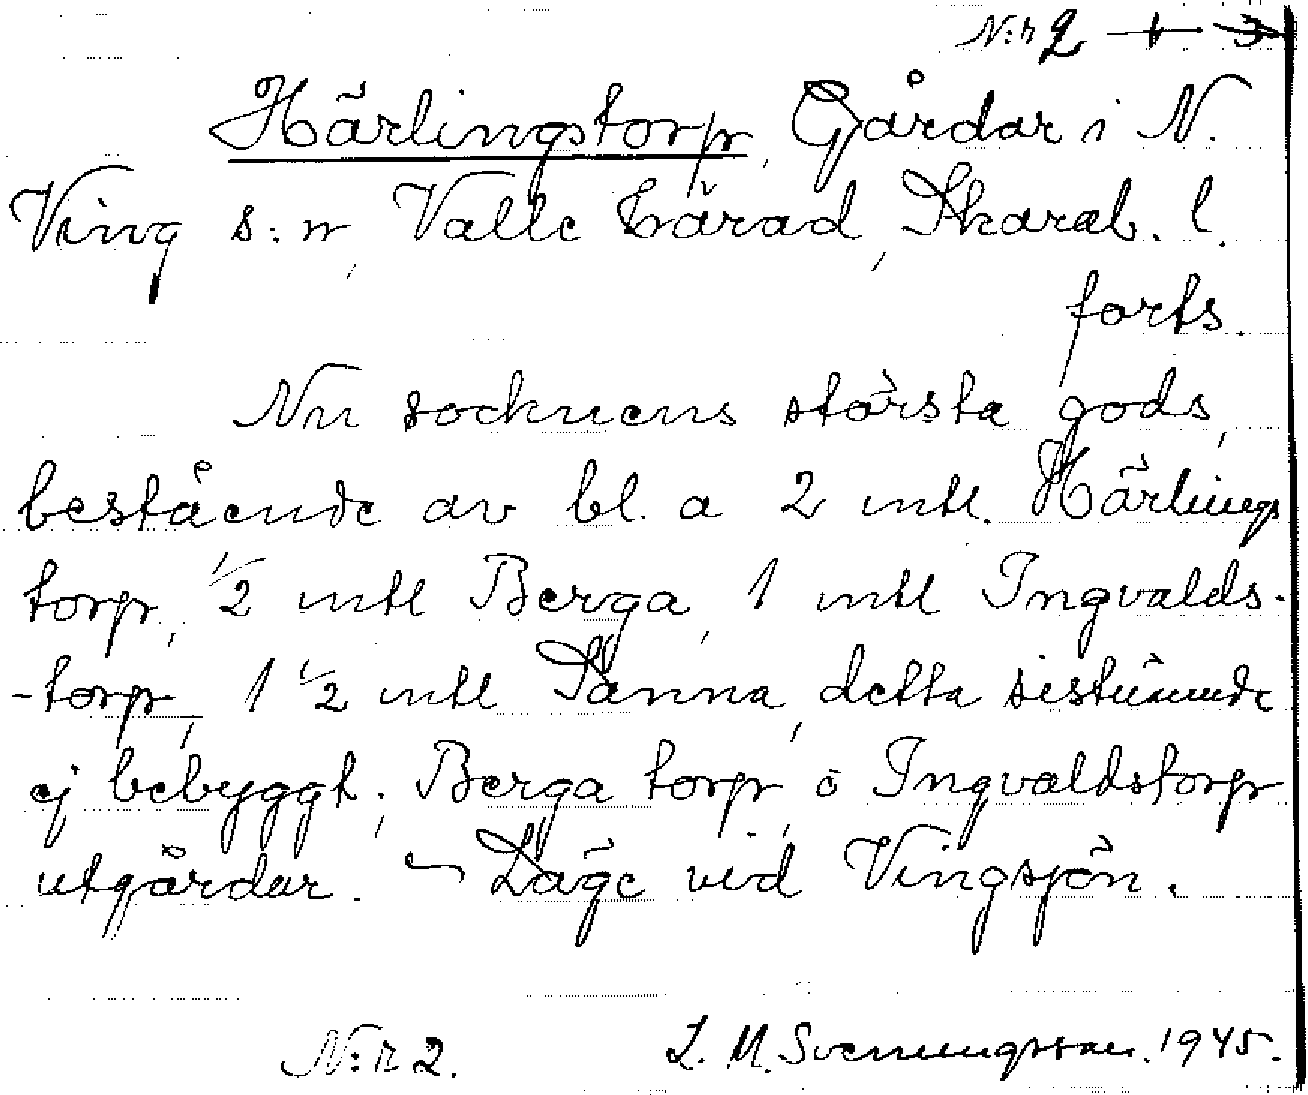 N:r 2
Härlingstorp, Gårdar i N.
Ving s:n, Valle härad, Skarab. l.
forts.
Nu socknens största gods,
bestående av bl. a 2 mtl. Härlings
torp, 1/2 mtl Berga, 1 mtl Ingvalds-
-torp, 1 1/2 mtl Sänna, detta sistnämnde
ej bebyggt; Berga torp, o Ingvaldstorp
utgårdar. – Läge vid Vingsjön.
N:r 2. L. M. Svenungsson. 1945.